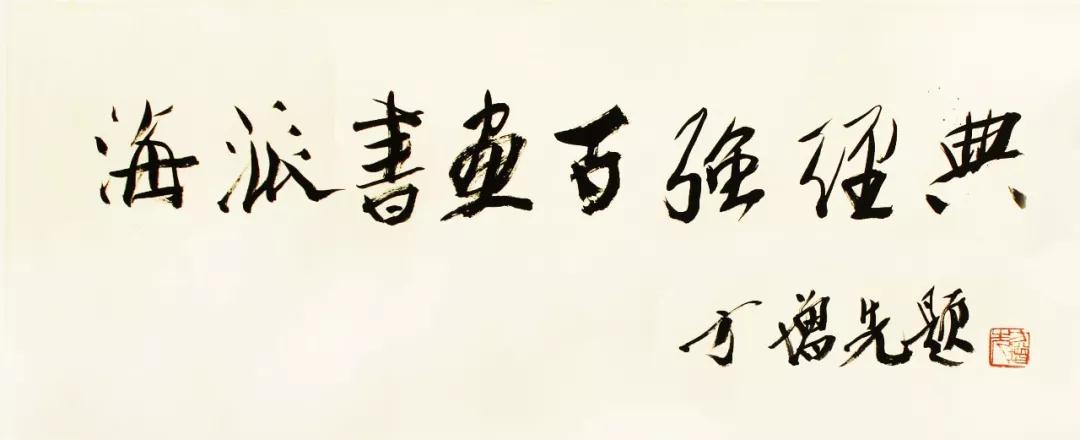 海派書畫百強經典
方增先題